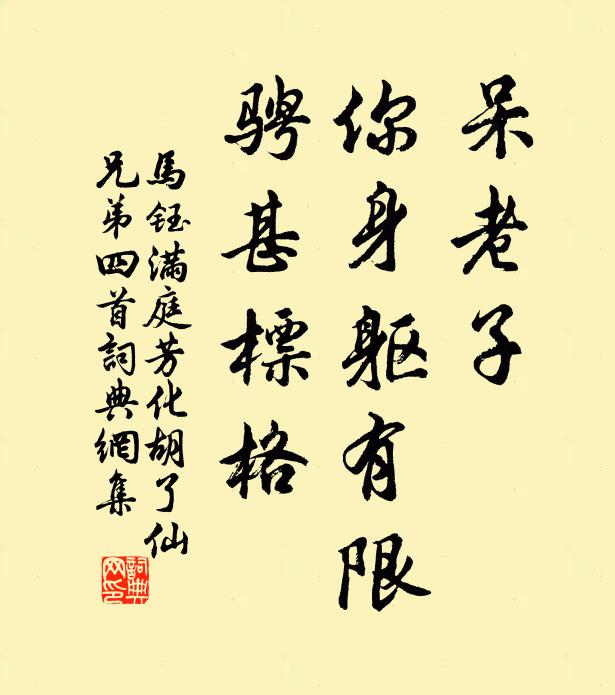 呆老子
你身軀有限
騁甚標格
馬鈺滿庭芳化胡了仙
兄弟四首詞典網集
詞典
网印